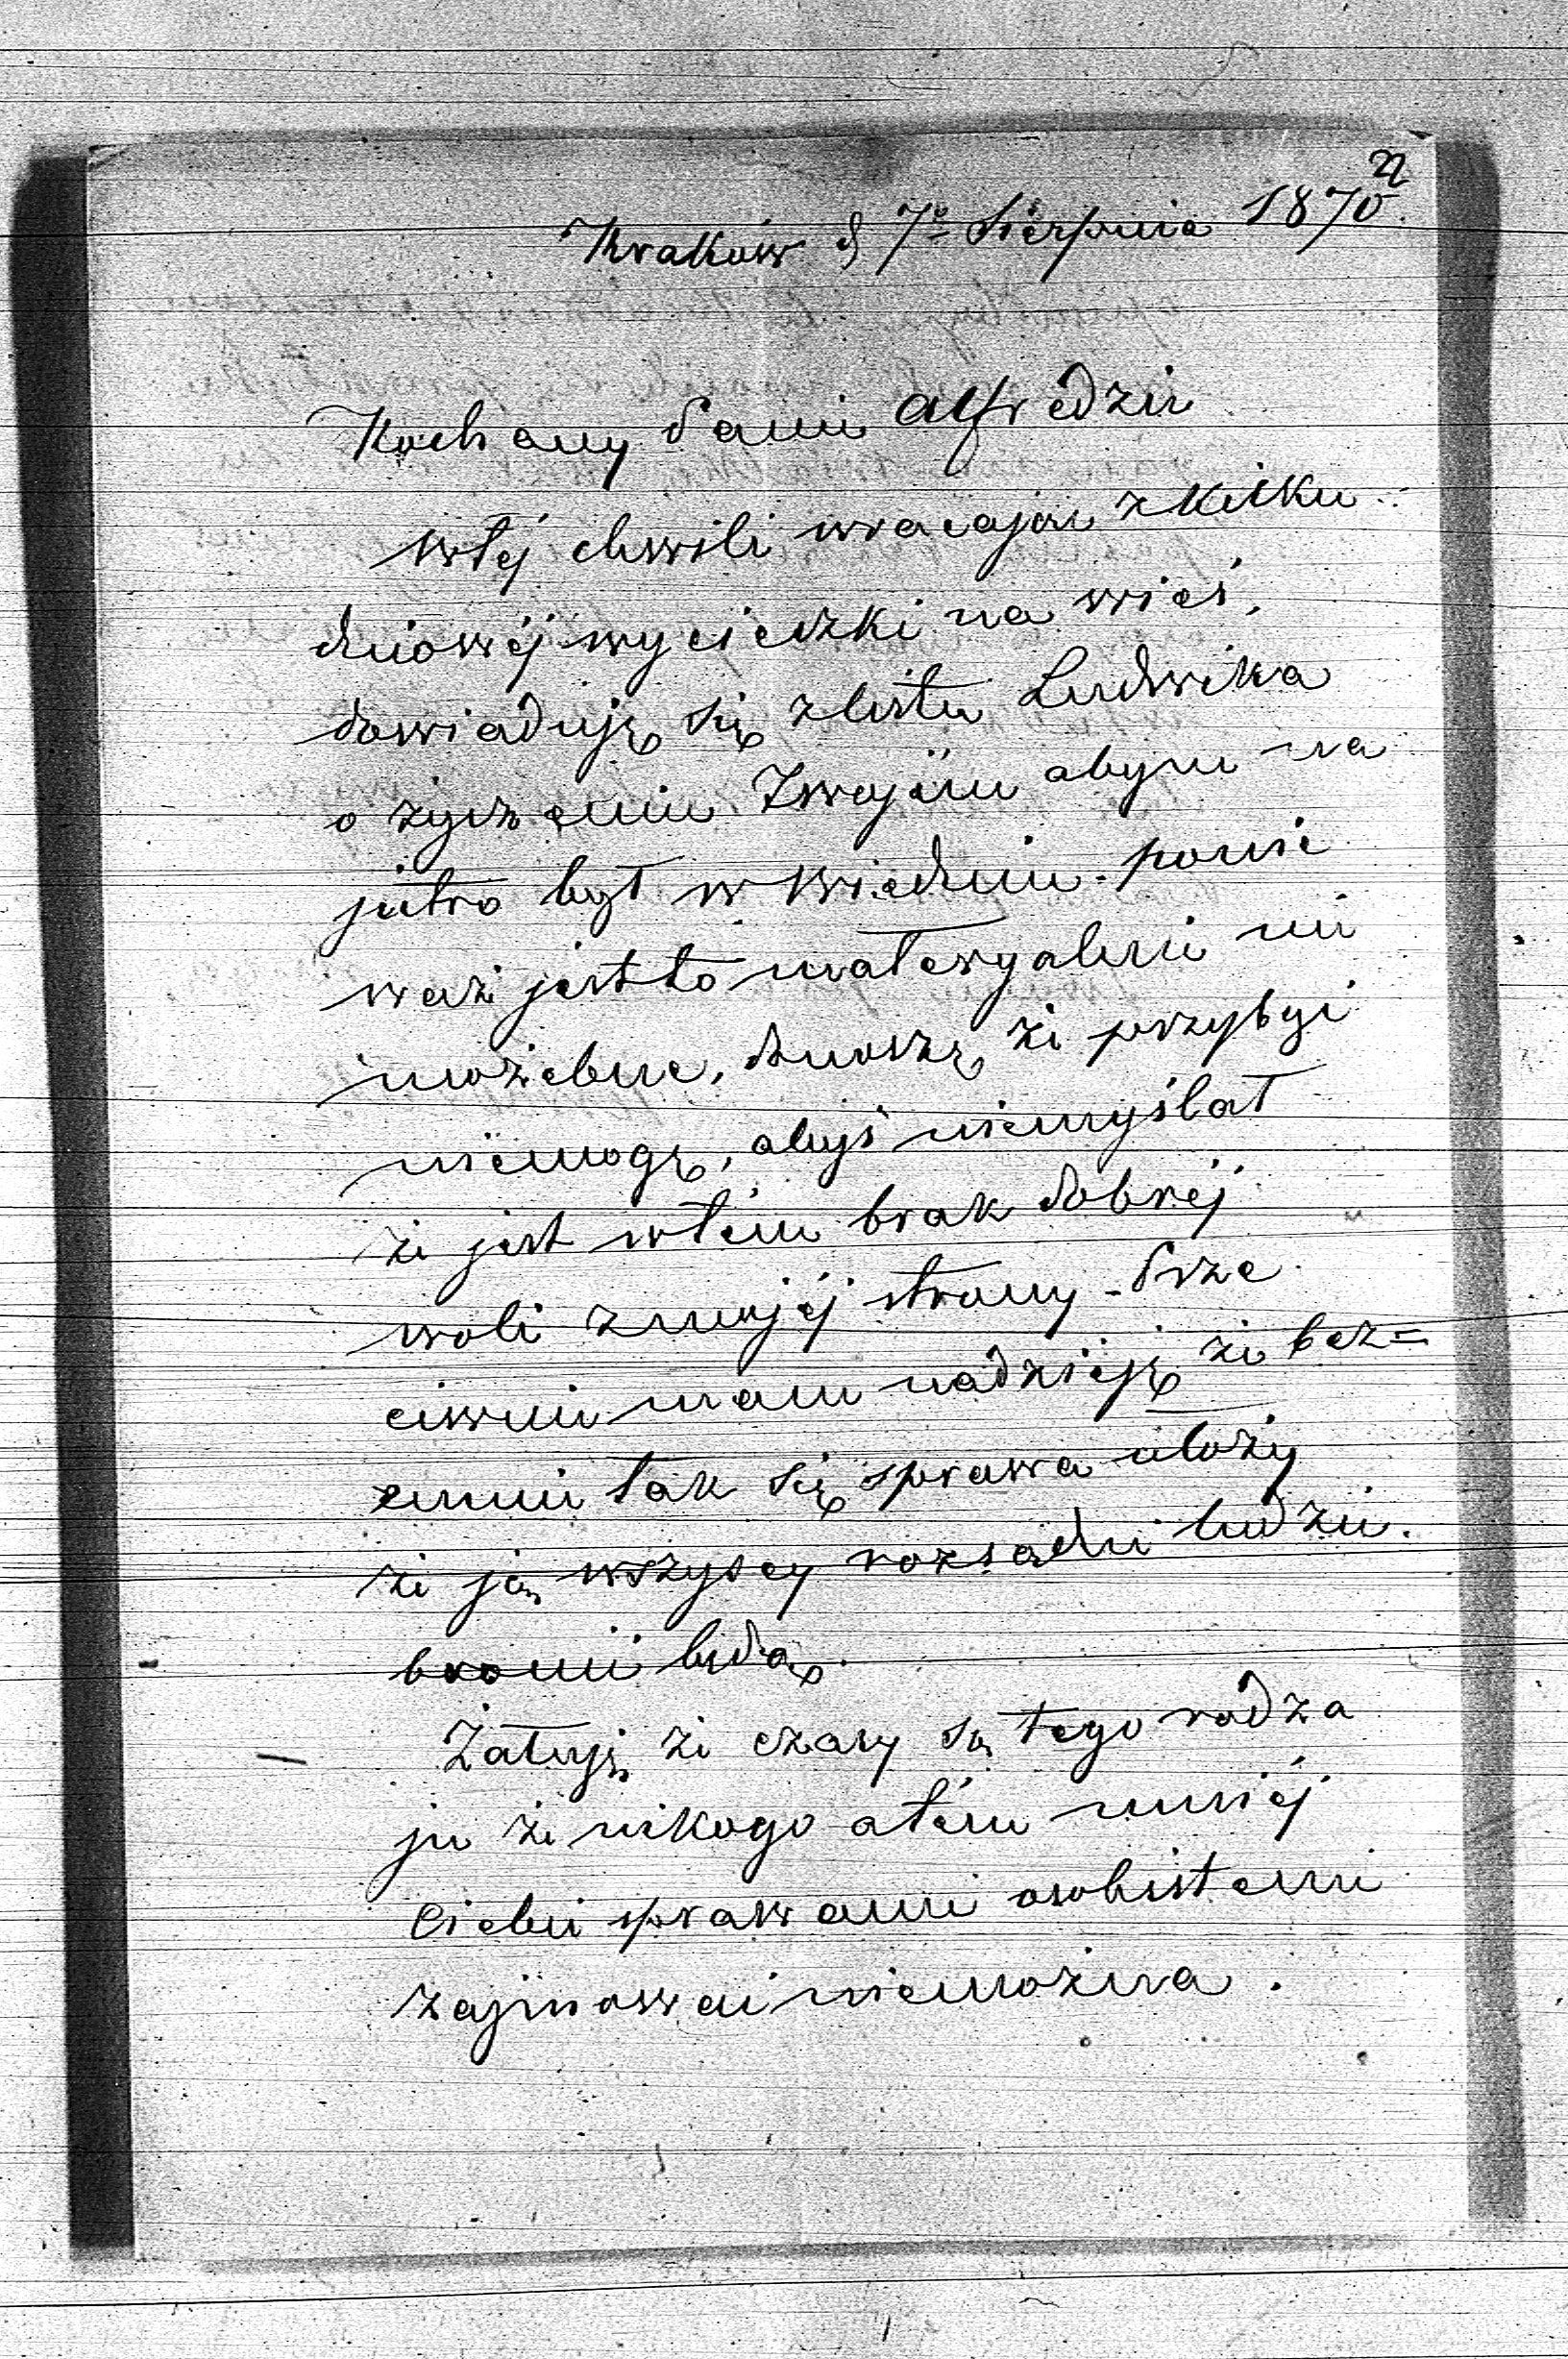 22
Kraków d 7º Sierpnia 1870.
Kochany Panie Alfredzie
W téj chwili wracając z kilku
dniowéj wycieczki na wieś,
dowiaduję się z listu Ludwika
o życzeniu Twojém abym na
jutro był w Wiedniu. ponie
waż jest to materyalnie nie
możebne, donoszę że przybyć
niemogę, abyś niemyślał
że jest w tém brak dobréj
woli z mojéj strony - Prze
ciwnie mam nadzieję że beze=
mnie tak się sprawa ułoży
że ją wszyscy rozsądni ludzie
bronić będą.
Żałuję że czasy są tego rodza
ju że nikogo a tém mniéj
Ciebie sprawami osobistemi
zajmować niemożna.